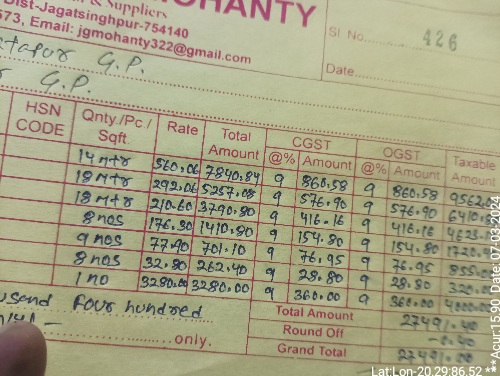 & Suppliers
MOHANTY
Dist-Jagatsinghpur-754140
573, Email: jgmohanty322@gmail.com
Sl No. 426
Date
G.P.
G.P.
HSN CODE Qnty./Pc / Sqft Rate Total Amount CGST @% Amount OGST @% Amount Taxable Amount
14 mtr 560.06 7840.84 9 860.58 9 860.58
18 mtr 292.06 5257.08 9 576.90 9 576.90
18 mtr 210.60 3790.80 9 416.16 9 416.16
8 nos 176.30 1410.80 9 154.80 9 154.80
9 nos 77.90 701.10 9 76.95 9 76.95
8 nos 32.80 262.40 9 28.80 9 28.80
1 no 3280.00 3280.00 9 360.00 9 360.00
usand four hundred
only.
Total Amount 27491.40
Round Off -0.40
Grand Total 27491.00
Lat:Lon-20.29:86.52